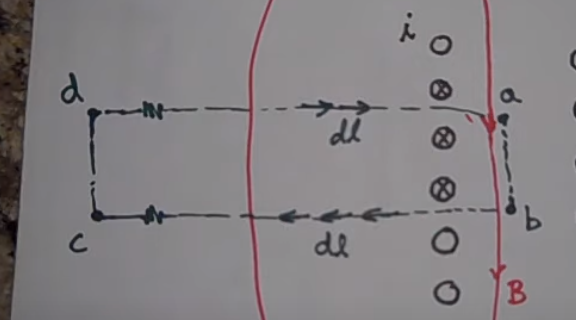 i
d
a
dl
b
c
dl
B